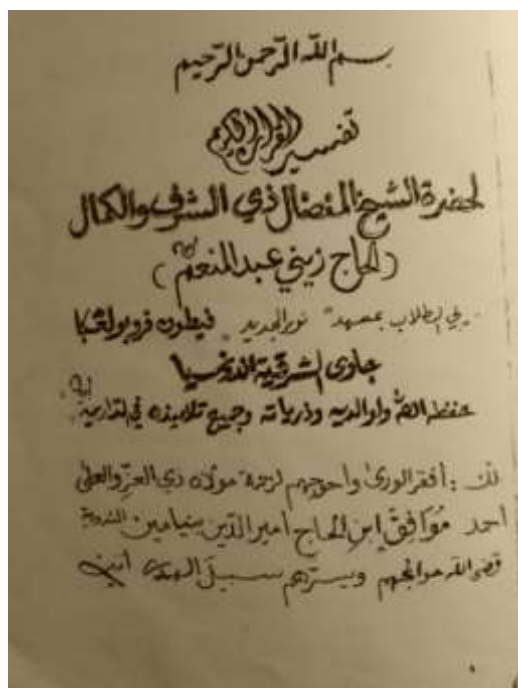 بسم الله الرحمن الرحيم
تفسير القرآن الكريم
لحضرة الشيخ المفضال ذي الشرف والكمال
(الحاج زيني عبد المنعم)
الطلاب بمعهد "نور الجديد" فيطون فروبولڠڬا
جاوى الشرقية اندونسيا
حفظه الله ولوالديه وذرياته وجميع تلاميذه في الدارين
أفقر الورى وأحوجهم لرحمة مولاه ذي العز والعلى
احمد موافق ابن الحاج امير الدين بنيامين
قضى الله حوائجهم ويسرهم سبيل الهدى امين